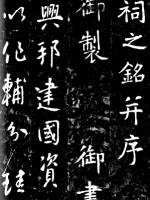 祠之銘并序
御製 御書
興邦建國資
以作輔分珪